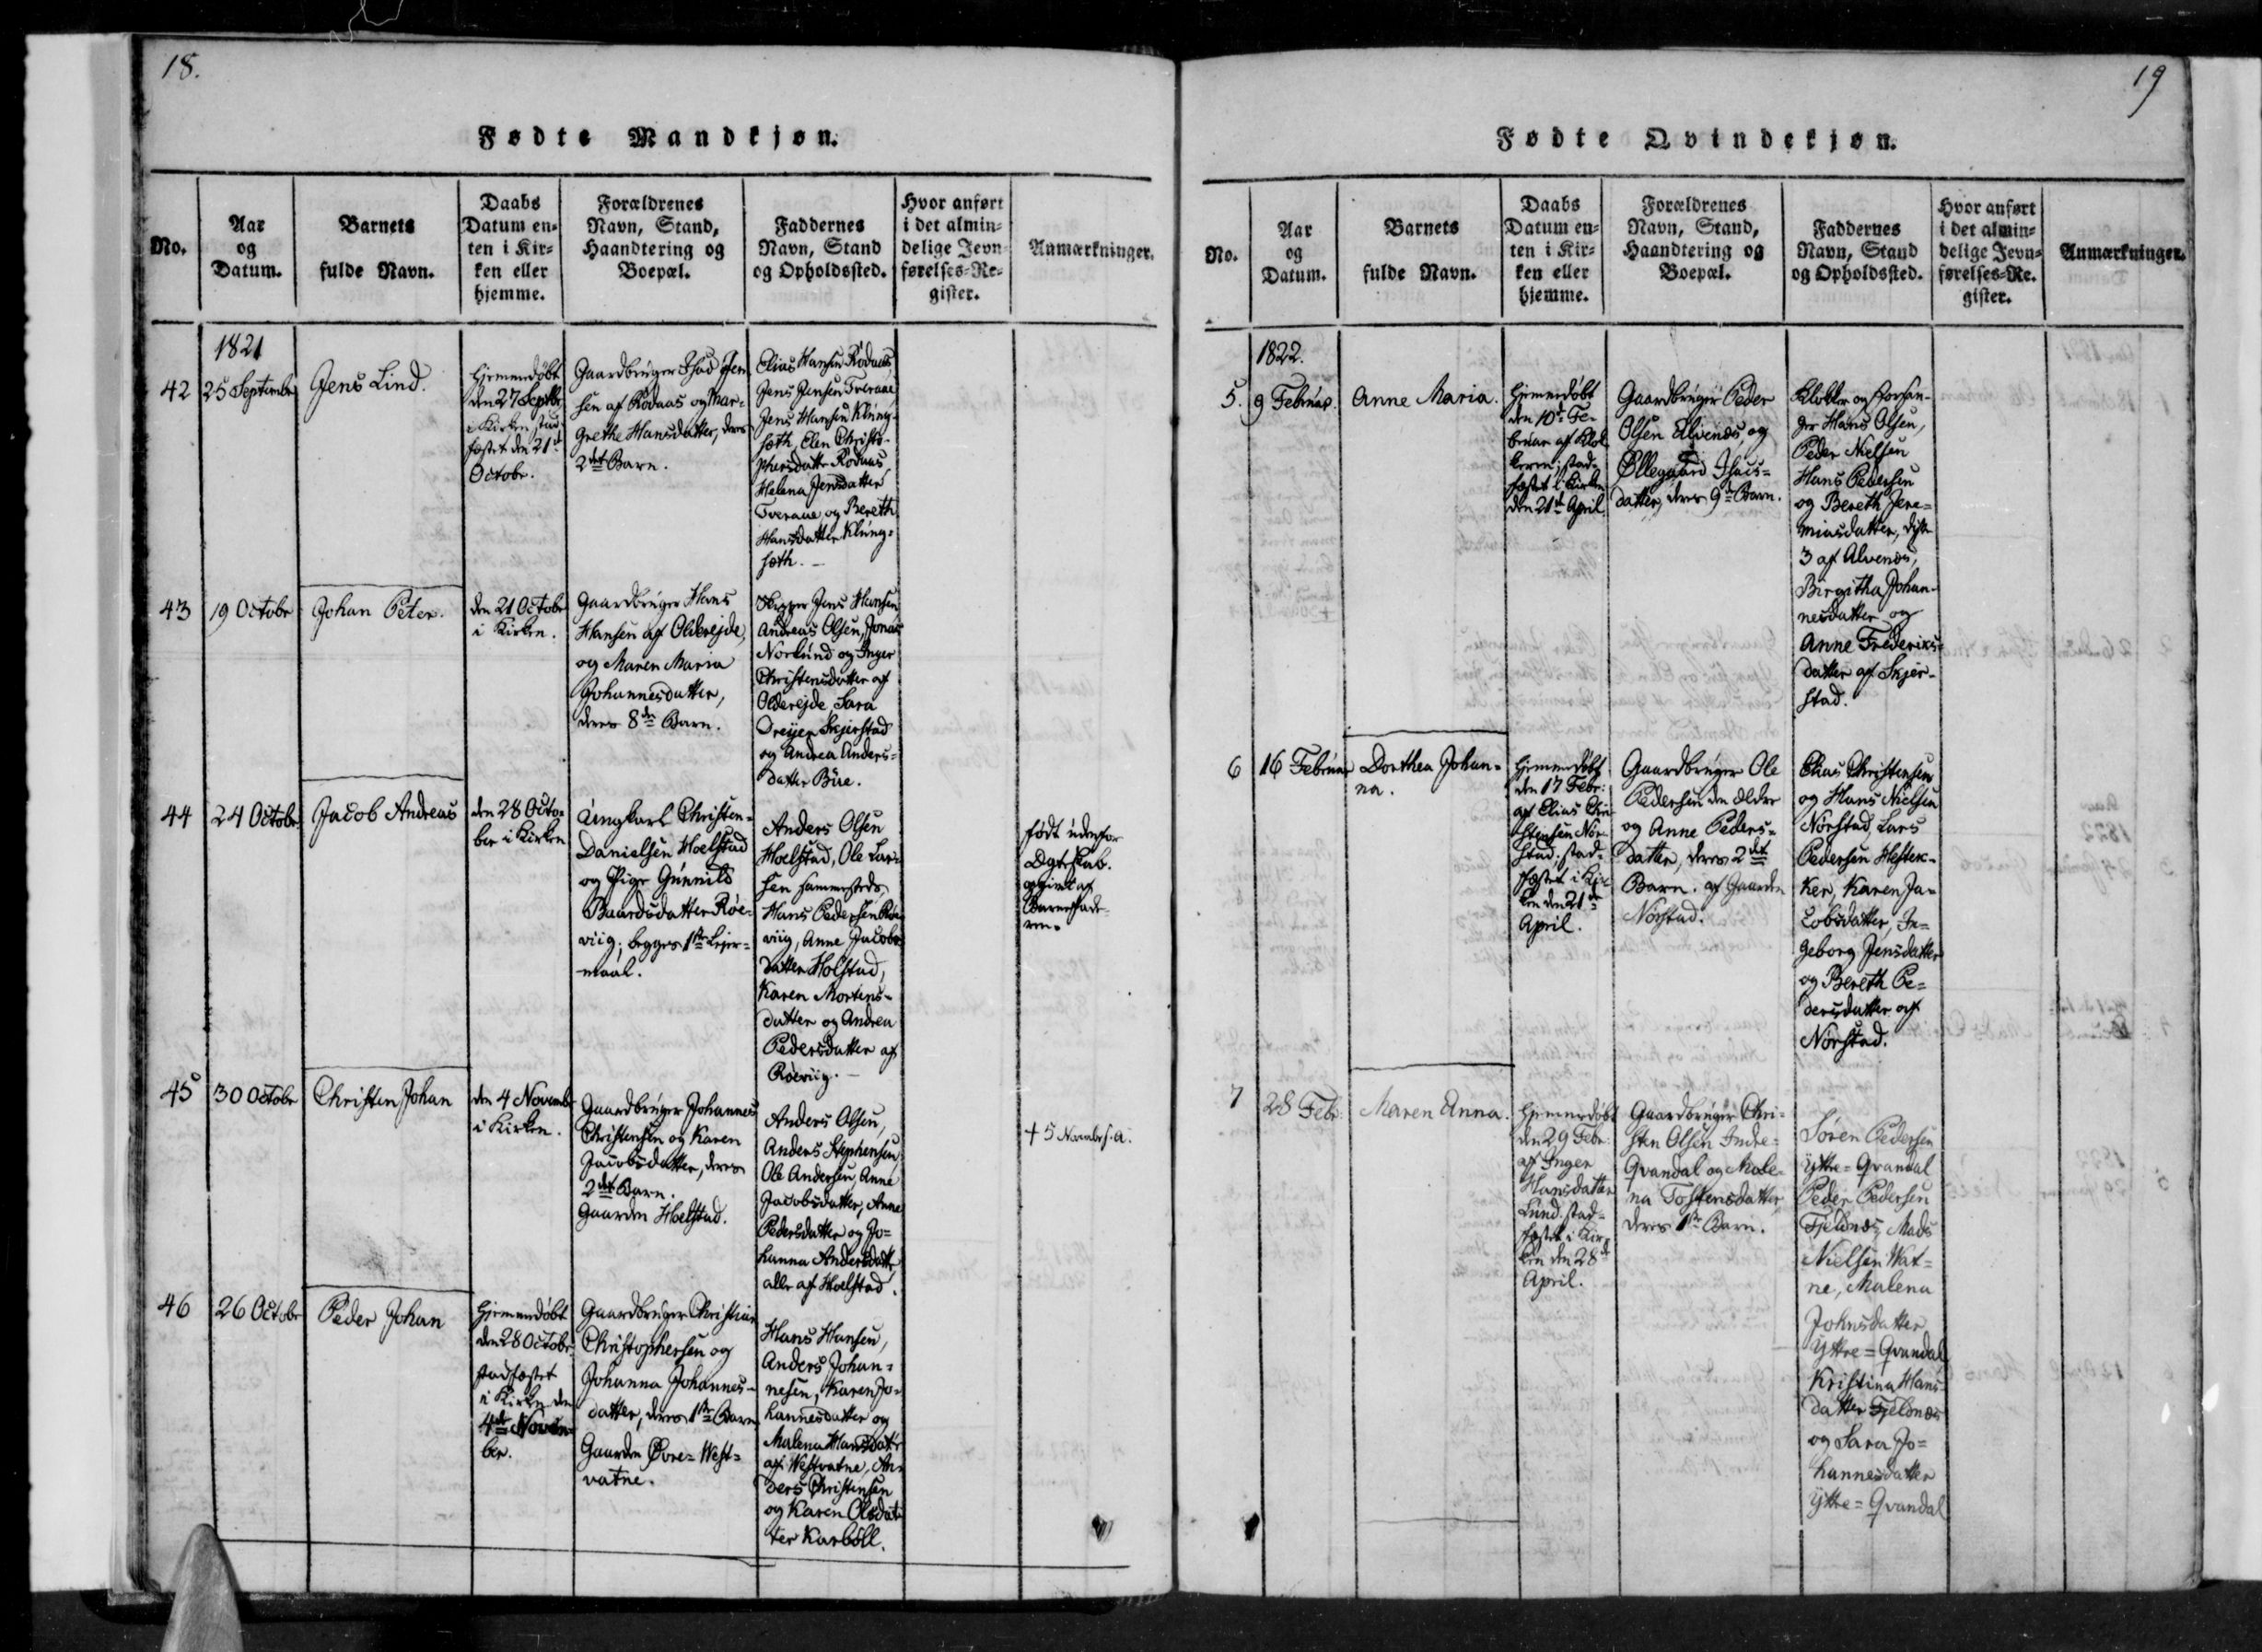 18.
Fødte Mandkjøn.
No.
Aar
og
Datum.
Barnets
fulde Navn.
Daabs
Datum en-
ten i Kir-
ken eller
hjemme.
Forældrenes
Navn, Stand,
Haandtering og
Boepæl.
Faddernes
Navn, Stand
og Opholdssted.
Hvor anført
i det almin-
delige Jevn-
førelses-Re-
gister.
Anmærkninger.
1821
42
25 September
Jens Lind.
Hjemmedøbt
den 27 Septbr
i Kirken stad-
fæstet den 21de
Octobr.
Gaardbruger Isac Jen
sen af Rödaas og Mar-
grethe Hansdatter, deres
2det Barn.
Elias Hansen Rödaas
Jens Jensen Tveraae
Jens Hansen Klúng-
sæth, Elen Christo-
phersdatter Rödaas
Helena Jensdatter
Tveraae og Bereth
Hansdatter Klúng-
sæth.
43
19 Octobr
Johan Peter.
den 21 Octobr
i Kirken.
Gaardbrúger Hans
Hansen af Olderejde,
og Maren Maria
Johannesdatter,
deres 8de Barn.
Skipper Jens Hansen
Andreas Olsen, Jonas
Norlúnd og Inger
Christensdatter af
Olderejde, Sara
Dreijer Skjerstad
og Andrea Anders-
datter Büe.
44
24 Octobr
Jacob Andreas
den 28 Octo-
ber i Kirken
Úngkarl Christen
Danielsen Hoelstad
og Pige Gúnnild
Baardsdatter Röe-
viig; begges 1ste Lejer-
maal.
Anders Olsen
Hoelstad, Ole Lar-
sen sammesteds,
Hans Pedersen Röe
viig, Anne Jacobs
datter Holstad,
Karen Mortens-
datter og Andrea
Pedersdatter af
Röeviig.
født udenfor
Ægteskab.
opgivet af
Barnefade-
ren.
45
30 Octobr
Christen Johan
den 4 Novembr
i Kirken.
Gaardbrúger Johannes
Christensen og Karen
Jacobsdatter, deres
2det Barn.
Gaarden Hoelstad.
Anders Olsen,
Anders Stephensen,
Ole Andersen, Anne
Jacobsdatter, Anne
Pedersdatter og Jo-
hanna Andersdatter
alle af Hoelstad.
† 5 Novembr s. a.
46
26 Octobr
Peder Johan
Hjemmedøbt
den 28 Octobr.
stadfæstet
i Kirken den
4de Novem-
ber.
Gaardbruger Christian
Christophersen og
Johanna Johannes-
datter, deres 1ste Barn
Gaarden Øvre-West-
vatne.
Hans Hansen,
Anders Johan-
nesen, Karen Jo-
hannesdatter og
Malena Hansdatter
af Westvatne, An-
ders Christensen
og Karen Olsdat-
ter Karböll.
19
Fødte Qvindekjøn.
No.
Aar
og
Datum.
Barnets
fulde Navn.
Daabs
Datum en-
ten i Kir-
ken eller
hjemme.
Forældrenes
Navn, Stand,
Haandtering og
Boepæl.
Faddernes
Navn, Stand
og Opholdssted.
Hvor anført
i det almin-
delige Jevn-
førelses-Re-
gister.
Anmærkninger.
1822.
5.
9 Februar.
Anne Maria.
Hjemmedøbt
den 10de Fe-
bruar af Klok
keren; stad-
fæstet i Kirken
den 21de April
Gaardbrúger Peder
Olsen Alvenæs, og
Øllegaard Isacs-
datter, deres 9de Barn.
Klokker og Forsan-
ger Hans Olsen,
Peder Nielsen
Hans Pedersen
og Bereth Jere-
miasdatter, disse
3 af Alvenæs,
Birgitha Johan-
nesdatter og
Anne Frederiks-
datter af Skjer-
stad.
6
16 Februar
Dorthea Johan-
na.
Hjemmedøbt
den 17 Febr:
af Elias Chri
stensen Nör-
stad; stad-
fæstet i Kir
ken den 21de
April.
Gaardbrúger Ole
Pedersen den ældre
og Anne Peders-
datter, deres 2det
Barn. af Gaarden
Nörstad.
Elias Christensen
og Hans Nielsen
Nörstad, Lars
Pedersen Hestek-
ker, Karen Ja-
cobsdatter, In-
geborg Jensdatter
og Bereth Pe-
dersdatter af
Nörstad.
7
28 Febr:
Maren Anna.
Hjemmedøbt
den 29 Febr:
af Inger
Hansdatter
Lúnd. stad-
fæstet i Kir-
ken den 28de
April.
Gaardbrúger Chri-
sten Olsen Indre-
Qvandal og Male-
na Tostensdatter,
deres 1ste Barn.
Sören Pedersen
Yttre-Qvandal
Peder Pedersen
Fjeldnæs, Mads
Nielsen Wat-
ne, Malena
Johnsdatter
Yttre-Qvandal
Kristina Hans-
datter Fjeldnæs
og Sara Jo-
hannesdatter
Yttre-Qvandal